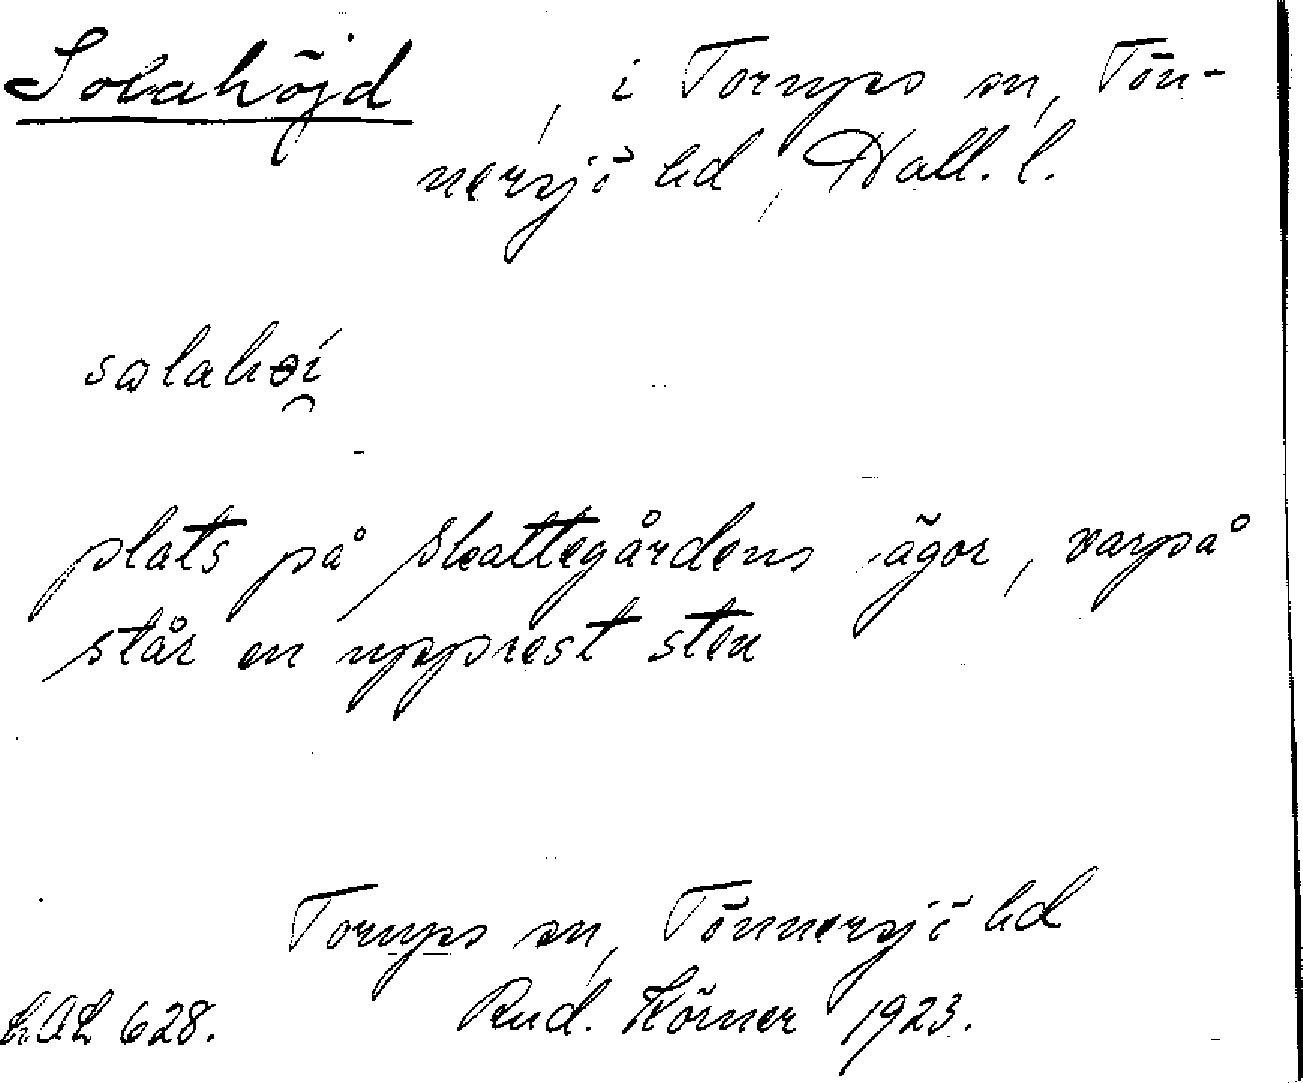 Solahöjd, i Torups sn, Tön-
nersjö hd, Hall. l.
salahøi̯
plats på Skattegårdens ägor, varpå
står en upprest sten
Torups sn, Tönnersjö hd
LAL 628. Rud. Körner 1923.